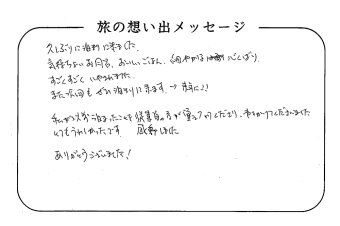 旅の想い出メッセージ
久しぶりに泊まりに来ました。
気持ちよいお風呂、おいしいごはん、細やかな心くばり、
すごくすごくいやされました。
また次回もぜひ泊まりに来ます。→
私が以前泊まったことを従業員の方が覚えて下さり、声をかけてくださいました
とてもうれしかったです。感動しました
ありがとうございました!